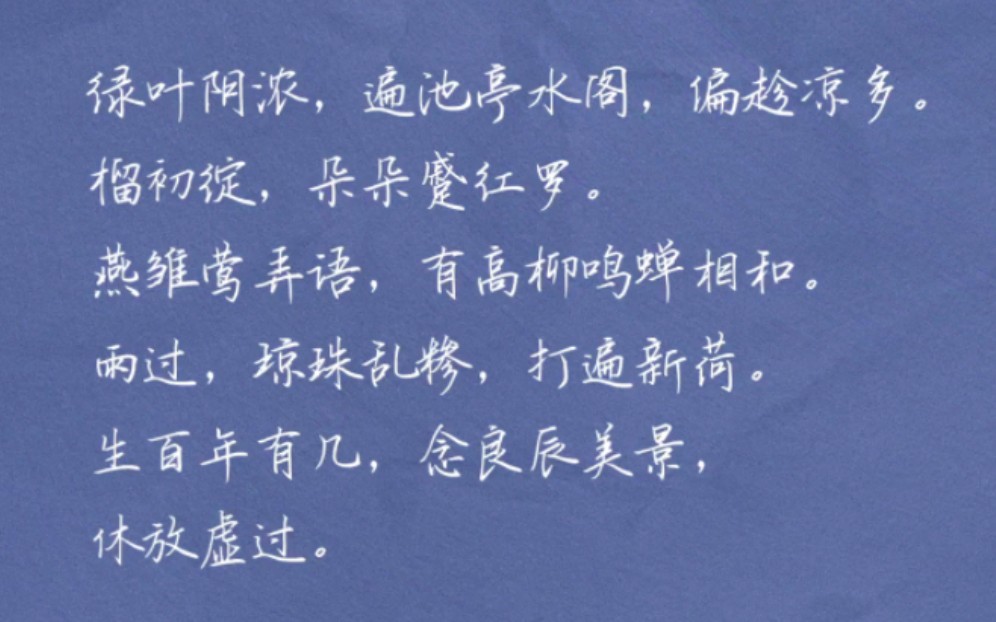 绿叶阴浓，遍池亭水阁，偏趁凉多。
榴初绽，朵朵蹙红罗。
燕雏莺弄语，有高柳鸣蝉相和。
雨过，琼珠乱糁，打遍新荷。
生百年有几，念良辰美景，
休放虚过。